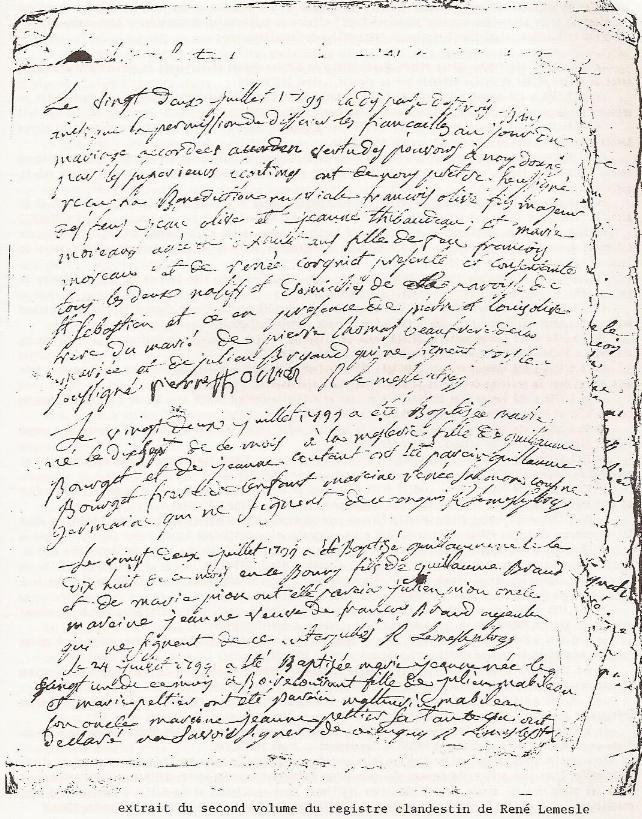 Le vingt deux juillet 1799 la dispense de trois bans
ainsi que la permission de differer les fiancailles au jour du
mariage accordées accorder vertu des pouvoirs à nous donné
par les superieurs legitimes ont de nous prêtre soussigné
recu la Benediction nuptiale francois olive fils majeur
des feus jean olive et jeanne thibaudeau ; et marie
moreau agée de trente ans fille de francois
moreau et de renée corgniet presente et consentente
tous les deux natifs et domiciliés de paroisse de
st Sebastien et ce en presence de pierre et louis olive
frere du marié de pierre thomas beaufrere de la
mariée et de julien Bryaud qui ne signent fors le
soussigné pierre thomas R Lemesle
Le vingt deux juillet 1799 a été Baptisée marie
né le dixsept de ce mois à la fille de guillaume
Bourget et de jeanne ont été parein guillaume
Bourget frere de l'enfant mareine renée cousine
germaine qui ne signent de ce enquis R Lemesle
Le vingt deux juillet 1799 a été Baptisé guillaume né le
dix huit de ce mois en le Bourg fils de guillaume Braud
et de marie pion ont été parein julien pion oncle
mareine jeanne veuve de francois Braud ayeule
qui ne signent de ce interpellés R Lemesle
Le 24 juillet 1799 a été Baptisée marie jeanne née le
vingt un de ce mois à fille de julien mabileau
et marie peltier ont été parein mathurin mabileau
son oncle mareine jeanne peltier sa tante qui ont
declaré ne savoir signer de ce enquis R Lemesle
extrait du second volume du registre clandestin de René Lemesle